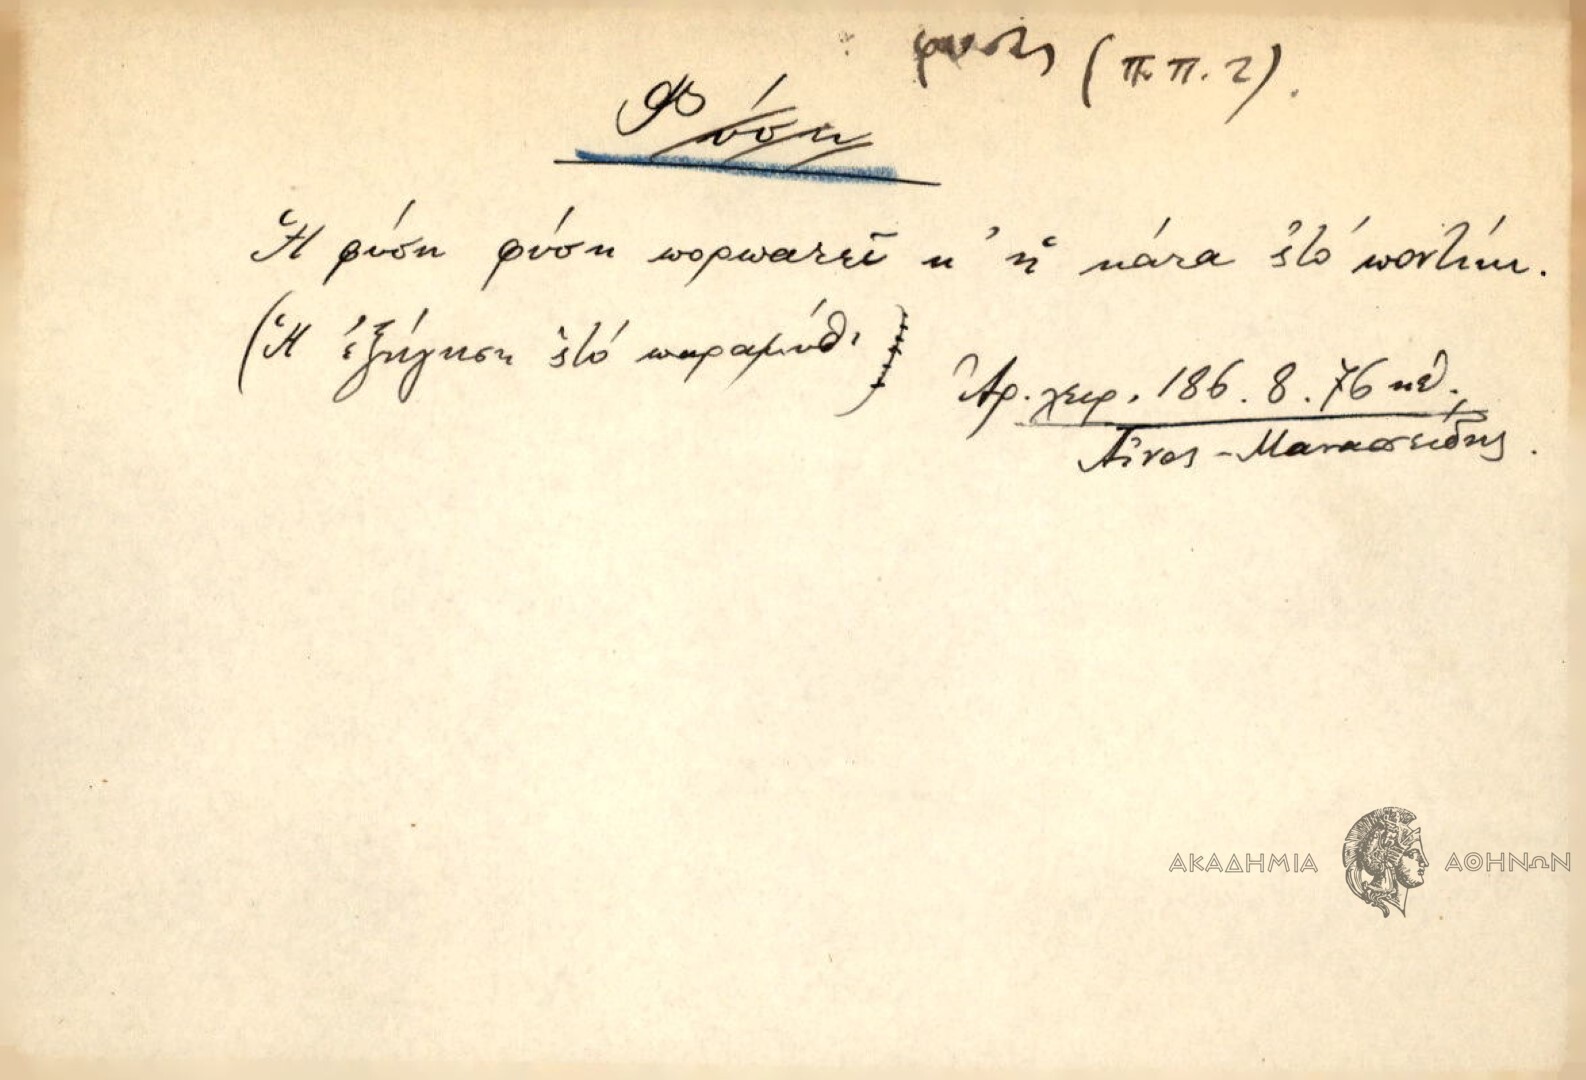 φύσις (π.π. 2).
Φύση
Ἡ φύση φύση πορπατεῖ κ' ἡ κάτα 'ς τὸ ποντίκι.
(Ἡ ἐξήγηση 'ς τὸ παραμύθι)
Ἀρ. χειρ. 186. 8. 76
Αἶνος - Μανασσείδης.
ΑΚΑΔΗΜΙΑ ΑΘΗΝΩΝ